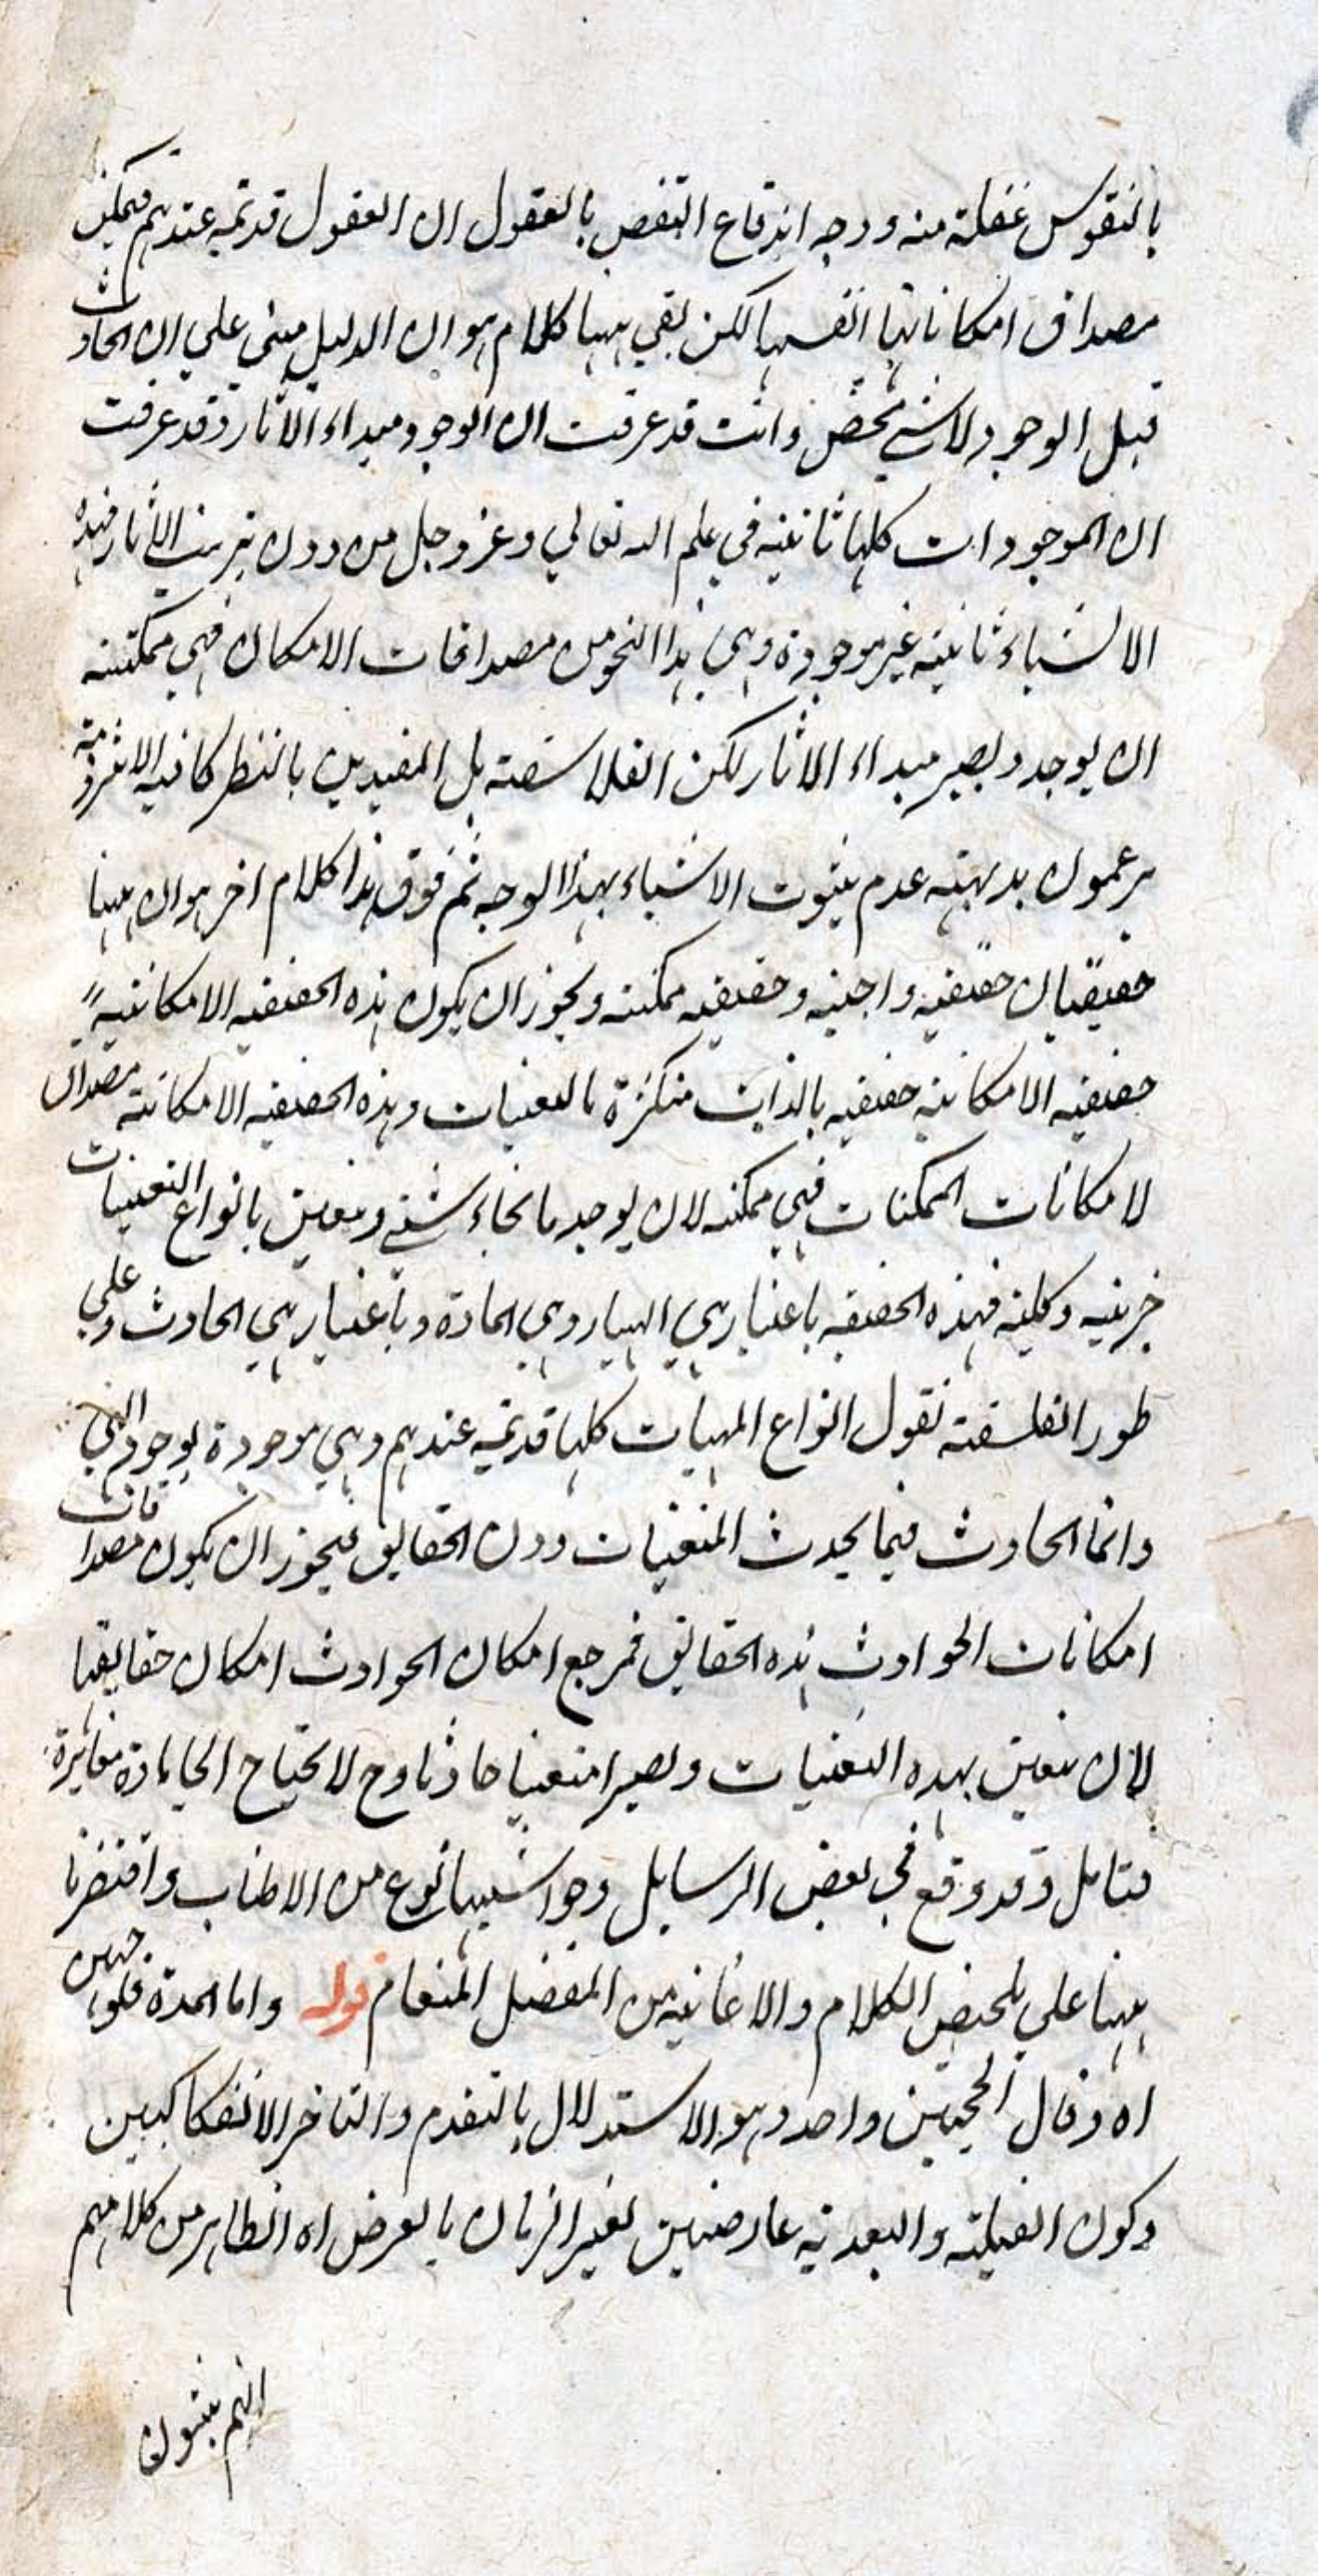 بالنفوس غفلة منه ووجه اندفاع النقض بالعقول ان العقول قديمة عندهم فيمكن
مصداق امكاناتها انفسها لكن بقي ههنا كلام هو ان الدليل مبنى علي ان الحادث
قبل الوجود لاشي محض وانت قد عرفت ان الوجود مبداء الآثار وقد عرفت
ان الموجودات كلها ثابتة في علم الله تعالي وعز وجل من دون ترتب الآثار فهذه
الاشياء ثابتة غير موجودة وهي بهذا النحو من مصداقات الامكان فهي ممكنة
ان يوجد ويصير مبداء الاثار لكن الفلاسفة بل المقيدين بالنظر كافة الا شرذمة
يزعمون بديهة عدم ثبوت الاشياء بهذا الوجه ثم فوق هذا كلام اخر هو ان ههنا
حقيقتان حقيقة واجبة وحقيقة ممكنة ويجوز ان يكون هذه الحقيقة الامكانية
حقيقة الامكانية حقيقة بالذات متكثرة بالتعينات وهذه الحقيقة الامكانية مصداق
لامكانات الممكنات فهي ممكنة لان يوجد بانحاء شتي ويتعين بانواع التعينات
جزئية وكلية فهذه الحقيقة باعتبار هي الهيار وهي المادة وباعتبار هي الحادث وعلي
طور الفلسفة نقول انواع المهيات كلها قديمة عندهم وهي موجودة بوجود الهي
وانما الحادث فيما يحدث التعينات دون الحقايق فيجوز ان يكون مصداقات
امكانات الحوادث هذه الحقايق فمرجع امكان الحوادث امكان حقايقها
لان يتعين بهذه التعينات ويصير متعينا حادثا وح لا يحتاج الي مادة مغائرة
فتامل وقد وقع في بعض الرسايل وحواشيها نوع من الاطناب واقتصرنا
ههنا علي تلخيص الكلام والاعانة من المفضل المنعام قوله واما المدة فلوجهين
اه ومال الحجتين واحد وهو الاستدلال بالتقدم والتاخر الانفكاكيين
وكون القبلية والبعدية عارضتين لغير الزمان بالعرض اه الظاهر من كلامهم
انهم يثبتون